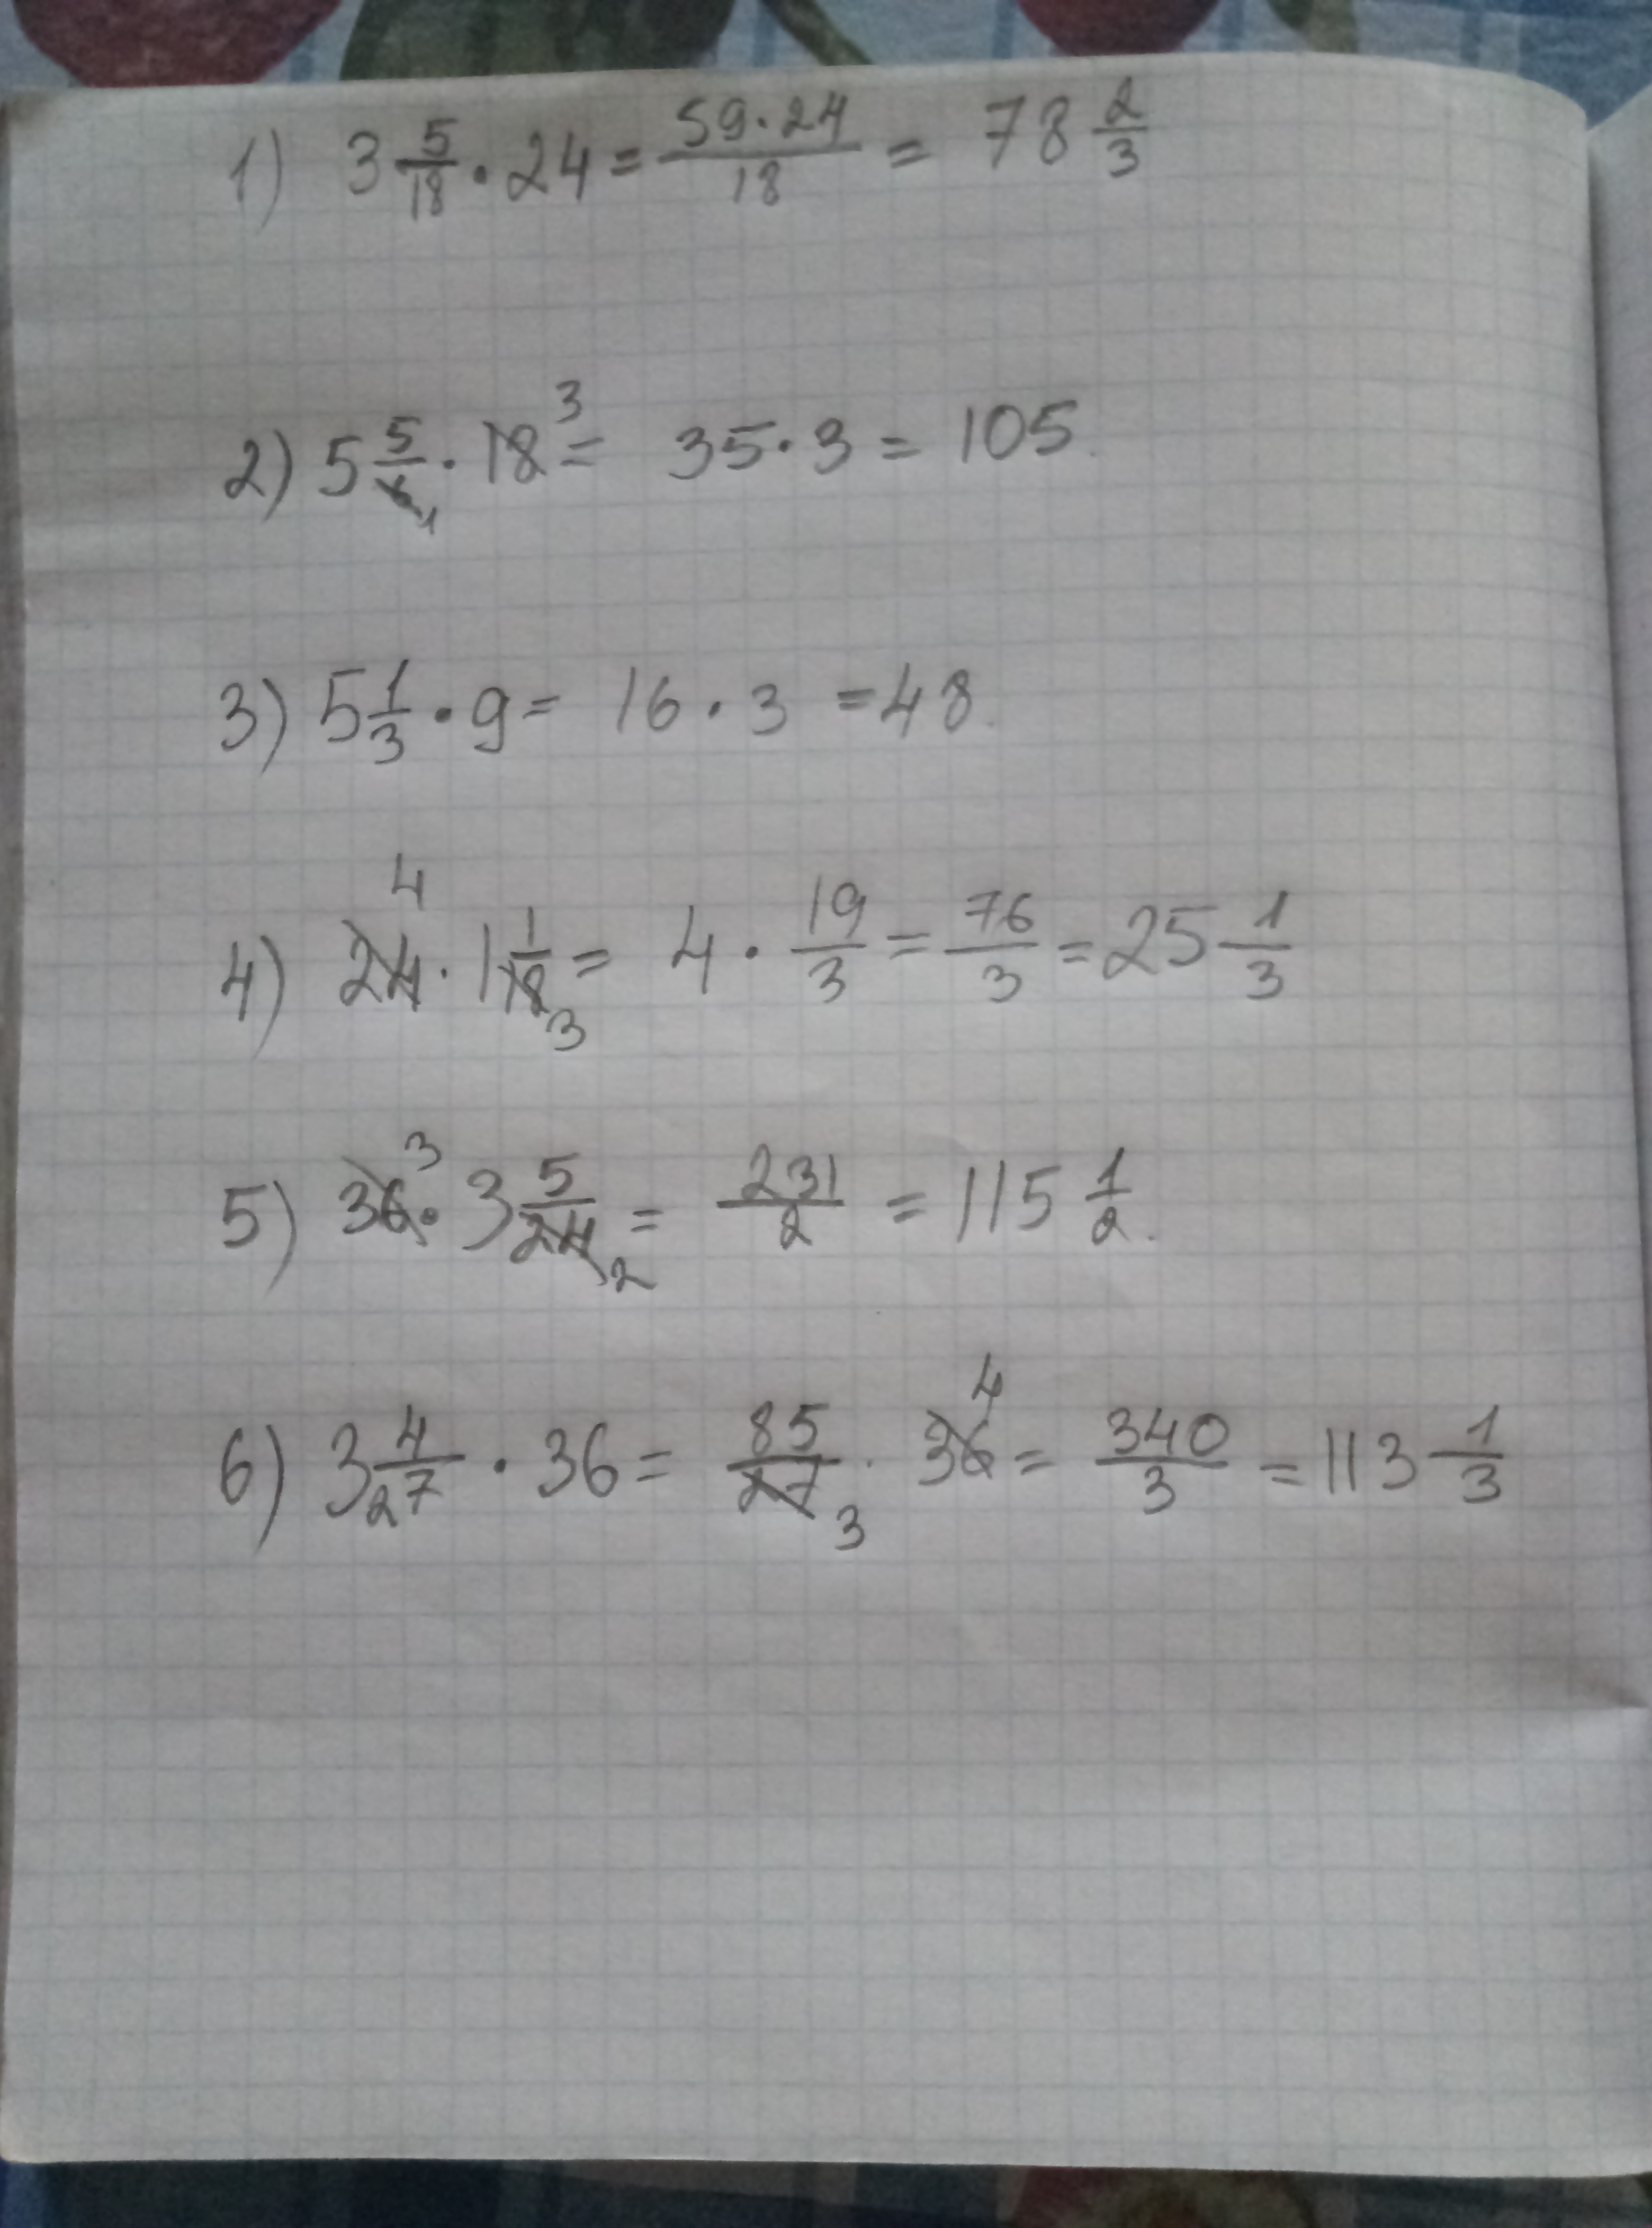 1) 3 5/18 · 24 = 59·24/18 = 78 2/3
2) 5 5/6 1 · 18 3 = 35 · 3 = 105.
3) 5 1/3 · 9 = 16 · 3 = 48.
4) 24 4 · 1 1/18 3 = 4 · 19/3 = 76/3 = 25 1/3
5) 36 3 · 3 5/24 2 = 231/2 = 115 1/2.
6) 3 4/27 · 36 = 85/27 3 · 36 4 = 340/3 = 113 1/3